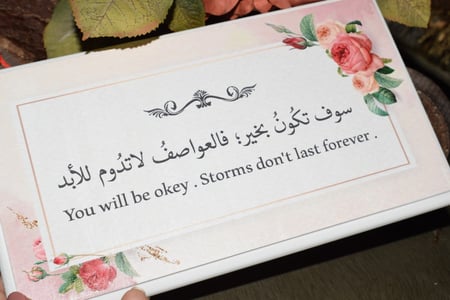 سوف تكُونُ بخير؛ فالعواصفُ لاتدُوم للأبد
You will be okey . Storms don't last forever .